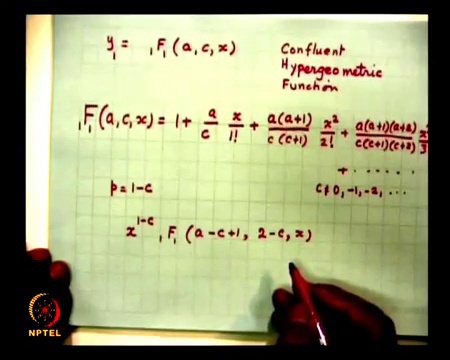 y₁ = ₁F₁ (a, c, x) Confluent
Hypergeometric
Function
₁F₁(a, c, x) = 1 + a/c x/1! + a(a+1)/c(c+1) x²/2! + a(a+1)(a+2)/c(c+1)(c+2) x³/3!
+ ......
p = 1-c c ≠ 0, -1, -2, ...
x^(1-c) ₁F₁ (a-c+1, 2-c, x)
NPTEL